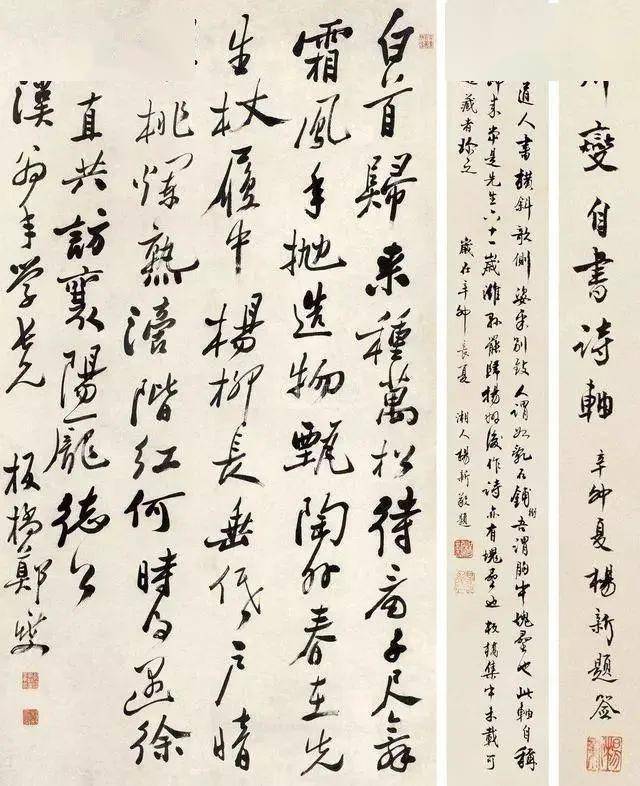 燮自書詩軸 辛卯夏楊新題簽
道人書橫斜欹側姿采別致人謂如亂石鋪街吾謂胸中塊壘也此軸自稱
歸來當是先生六十一歲濰縣罷歸揚州後作詩亦有塊壘也板橋集中未載可
藏者珍之 歲在辛卯長夏 湘人楊新敬題
白首歸來種萬松待看千尺舞
霜風年拋造物甄陶外春在先
生杖履中楊柳長垂低戶暗
桃爛熟滴階紅何時得遇徐
直共訪襄陽龐德公
漢翁年學長兄 板橋鄭燮